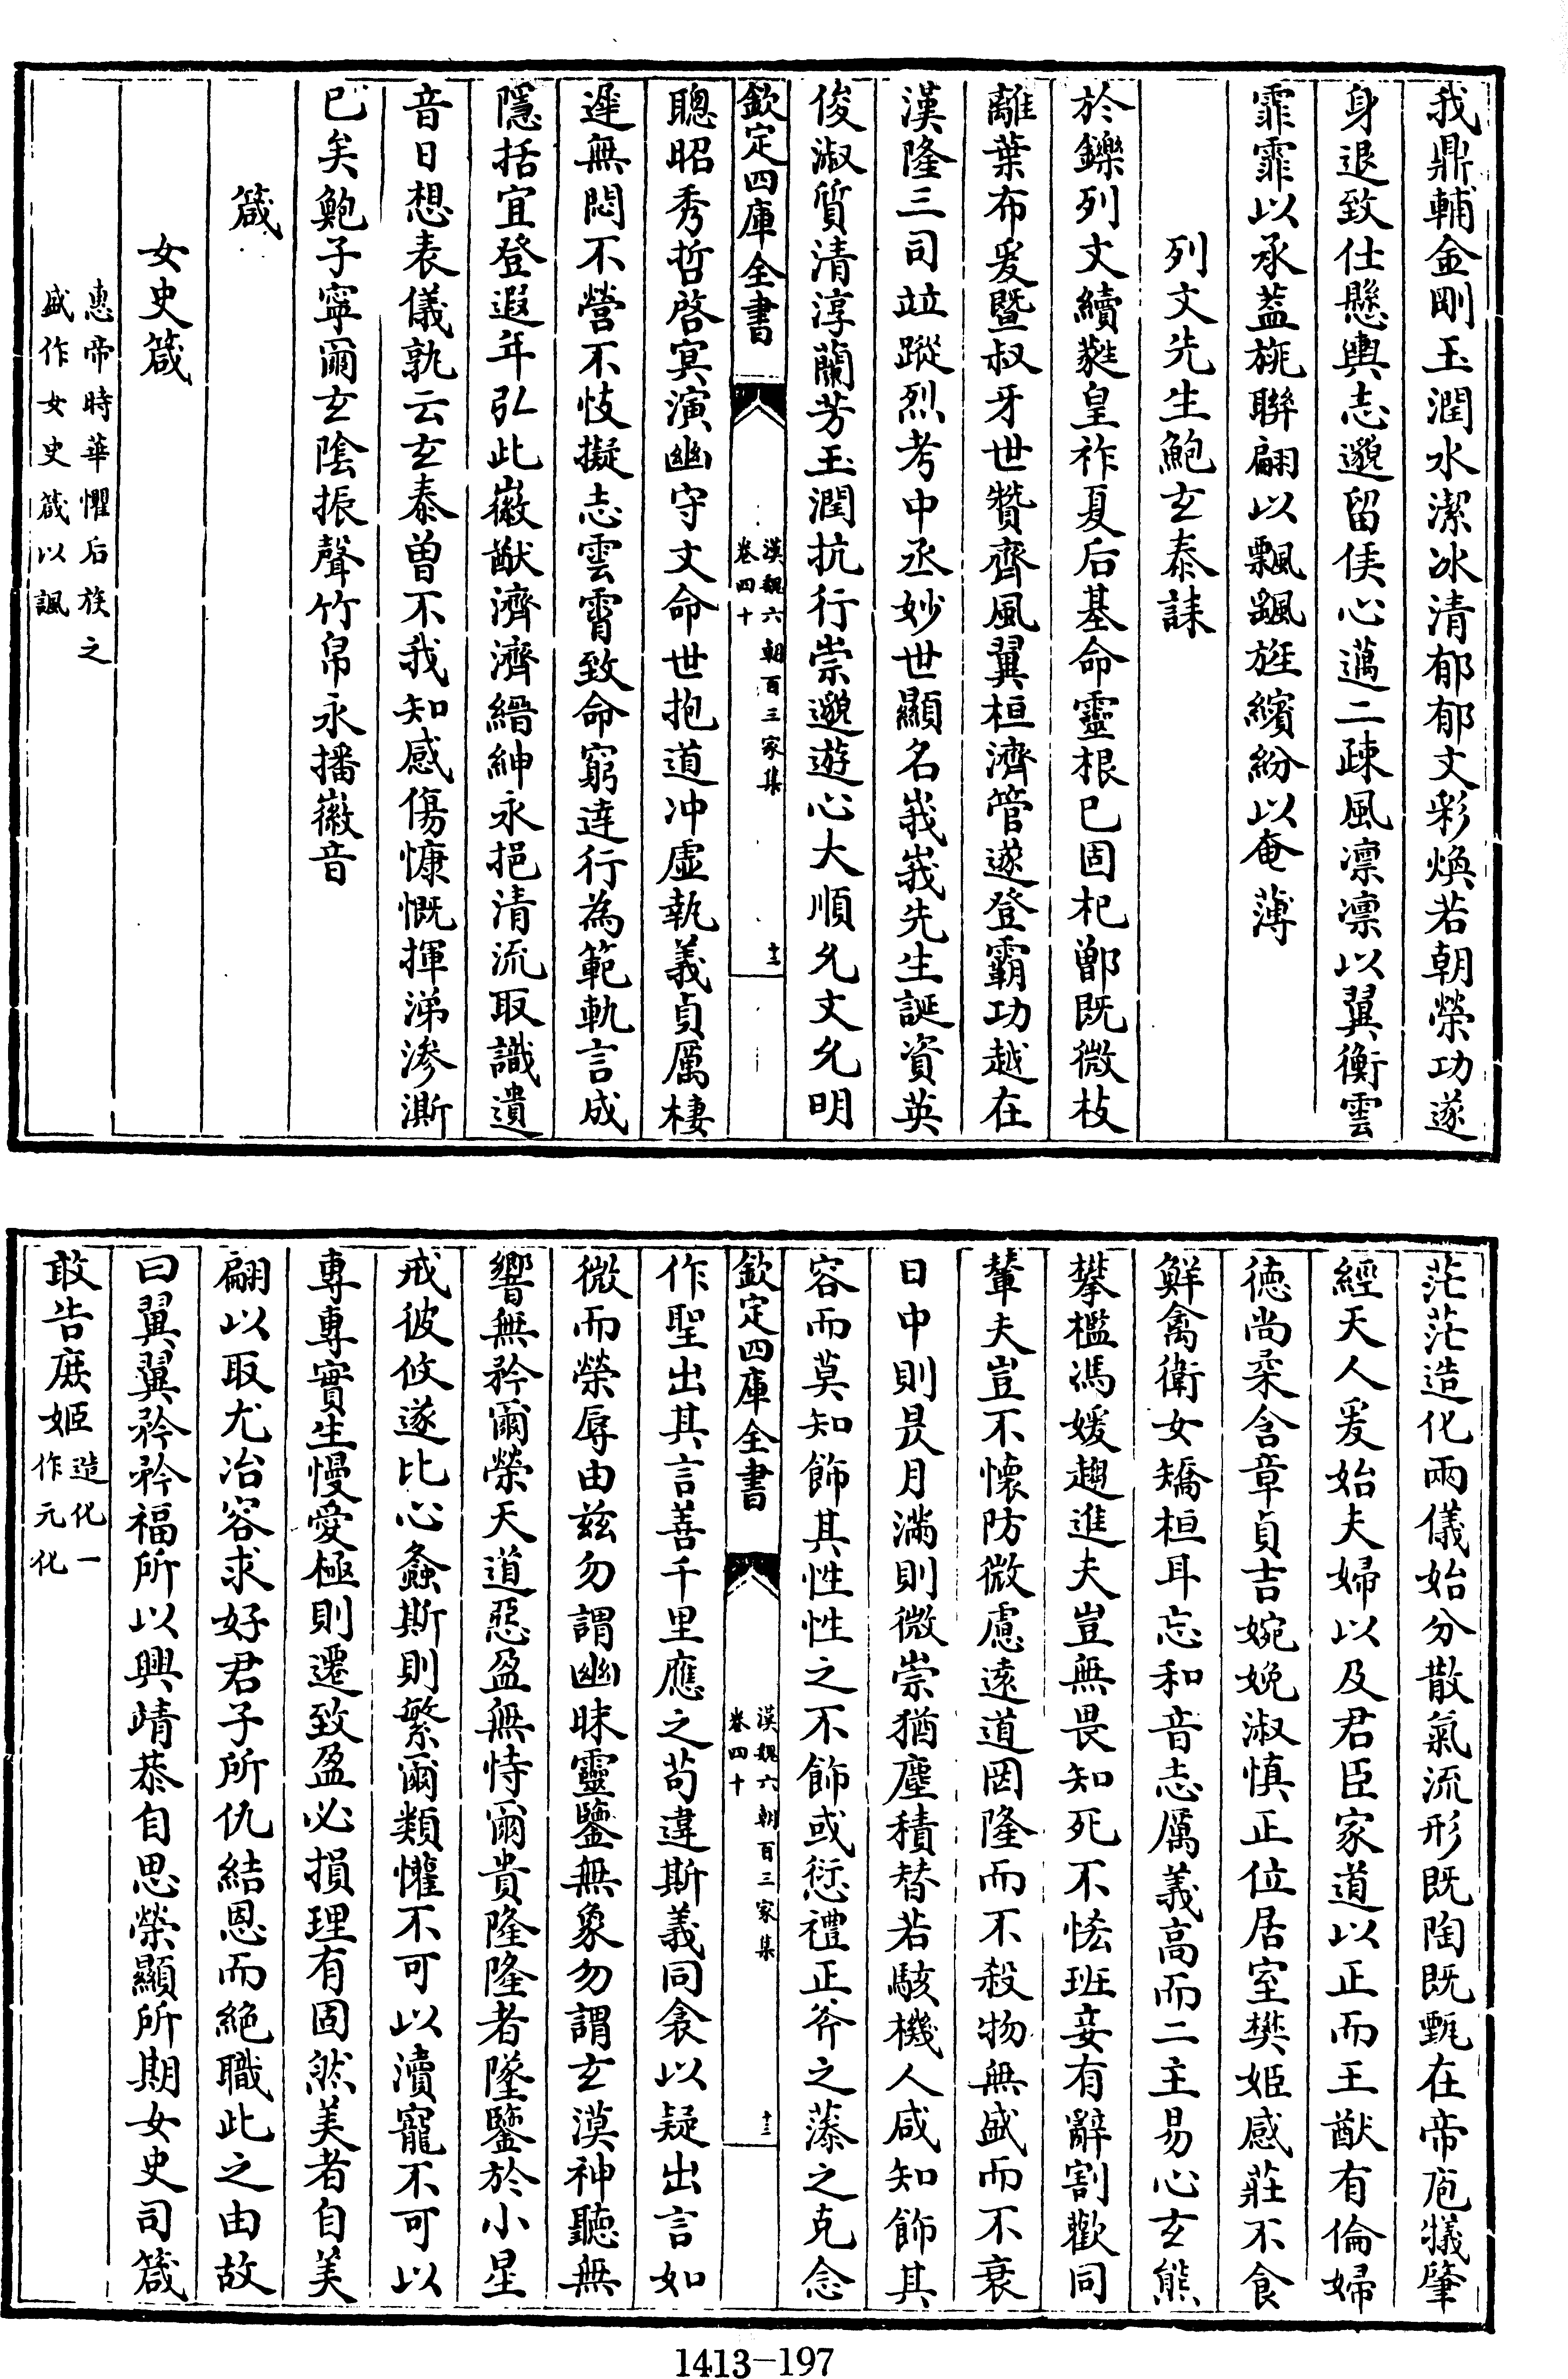 我鼎輔金剛玉潤水潔冰清郁郁文彩煥若朝榮功遂
身退致仕懸輿志邈留侯心邁二疎風凛凛以翼衡雲
霏霏以承葢旐聯翩以飄颻旌繽紛以奄薄
列文先生鮑玄泰誄
於鑠列文續蕤皇祚夏后基命靈根已固杞鄫既微枝
離葉布爰暨叔牙世贊齊風翼桓濟管遂登霸功越在
漢隆三司竝蹤烈考中丞妙世顯名峩峩先生誕資英
俊淑質清淳蘭芳玉潤抗行崇邈遊心大順允文允明
欽定四庫全書
漢魏六朝百三家集
卷四十
十二
聰昭秀哲啓冥演幽守文命世抱道冲虛執義貞厲棲
遲無悶不營不忮擬志雲霄致命窮達行為範軌言成
隱括宜登遐年弘此徽猷濟濟縉紳永挹清流取識遺
音日想表儀孰云玄泰曾不我知感傷慷慨揮涕滲澌
已矣鮑子寧爾玄陰振聲竹帛永播徽音
箴
女史箴
惠帝時華懼后族之
盛作女史箴以諷
茫茫造化兩儀始分散氣流形既陶既甄在帝庖犧肇
經天人爰始夫婦以及君臣家道以正而王猷有倫婦
德尚柔含章貞吉婉娩淑慎正位居室樊姬感莊不食
鮮禽衛女矯桓耳忘和音志厲義高而二主易心玄熊
攀檻馮媛趨進夫豈無畏知死不恡班妾有辭割歡同
輦夫豈不懷防微慮遠道罔隆而不殺物無盛而不衰
日中則昃月滿則微崇猶塵積替若駭機人咸知飾其
容而莫知飾其性性之不飾或愆禮正斧之藻之克念
欽定四庫全書
漢魏六朝百三家集
卷四十
十三
作聖出其言善千里應之苟違斯義同衾以疑出言如
微而榮辱由兹勿謂幽昧靈鑒無象勿謂玄漠神聽無
響無矜爾榮天道惡盈無恃爾貴隆隆者墜鑒於小星
戒彼攸遂比心螽斯則繁爾類懽不可以瀆寵不可以
專專實生慢愛極則遷致盈必損理有固然美者自美
翩以取尤冶容求好君子所仇結恩而絶職此之由故
曰翼翼矜矜福所以興靖恭自思榮顯所期女史司箴
敢告庶姬造化一
作元化
1413-197